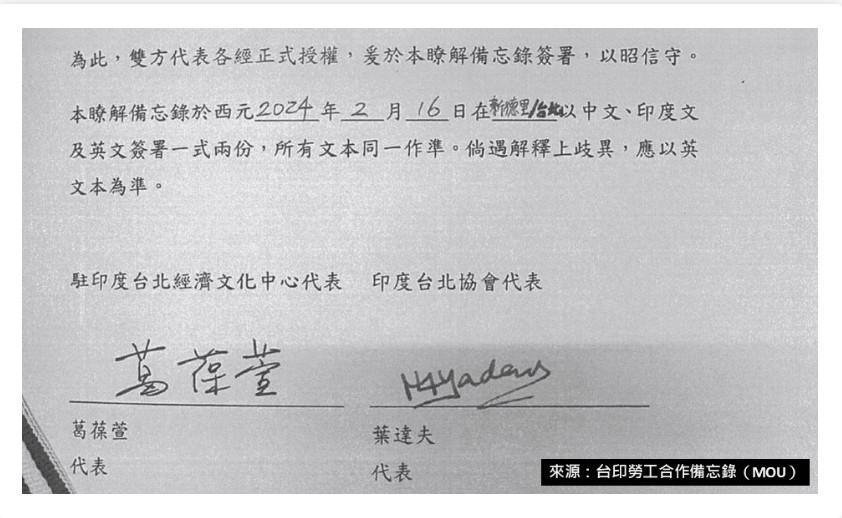 為此，雙方代表各經正式授權，爰於本瞭解備忘錄簽署，以昭信守。
本瞭解備忘錄於西元2024年2月16日在新德里/台北以中文、印度文
及英文簽署一式兩份，所有文本同一作準。倘遇解釋上歧異，應以英
文本為準。
駐印度台北經濟文化中心代表 印度台北協會代表
葛葆萱
葛葆萱 葉達夫
代表 代表
來源：台印勞工合作備忘錄（MOU）